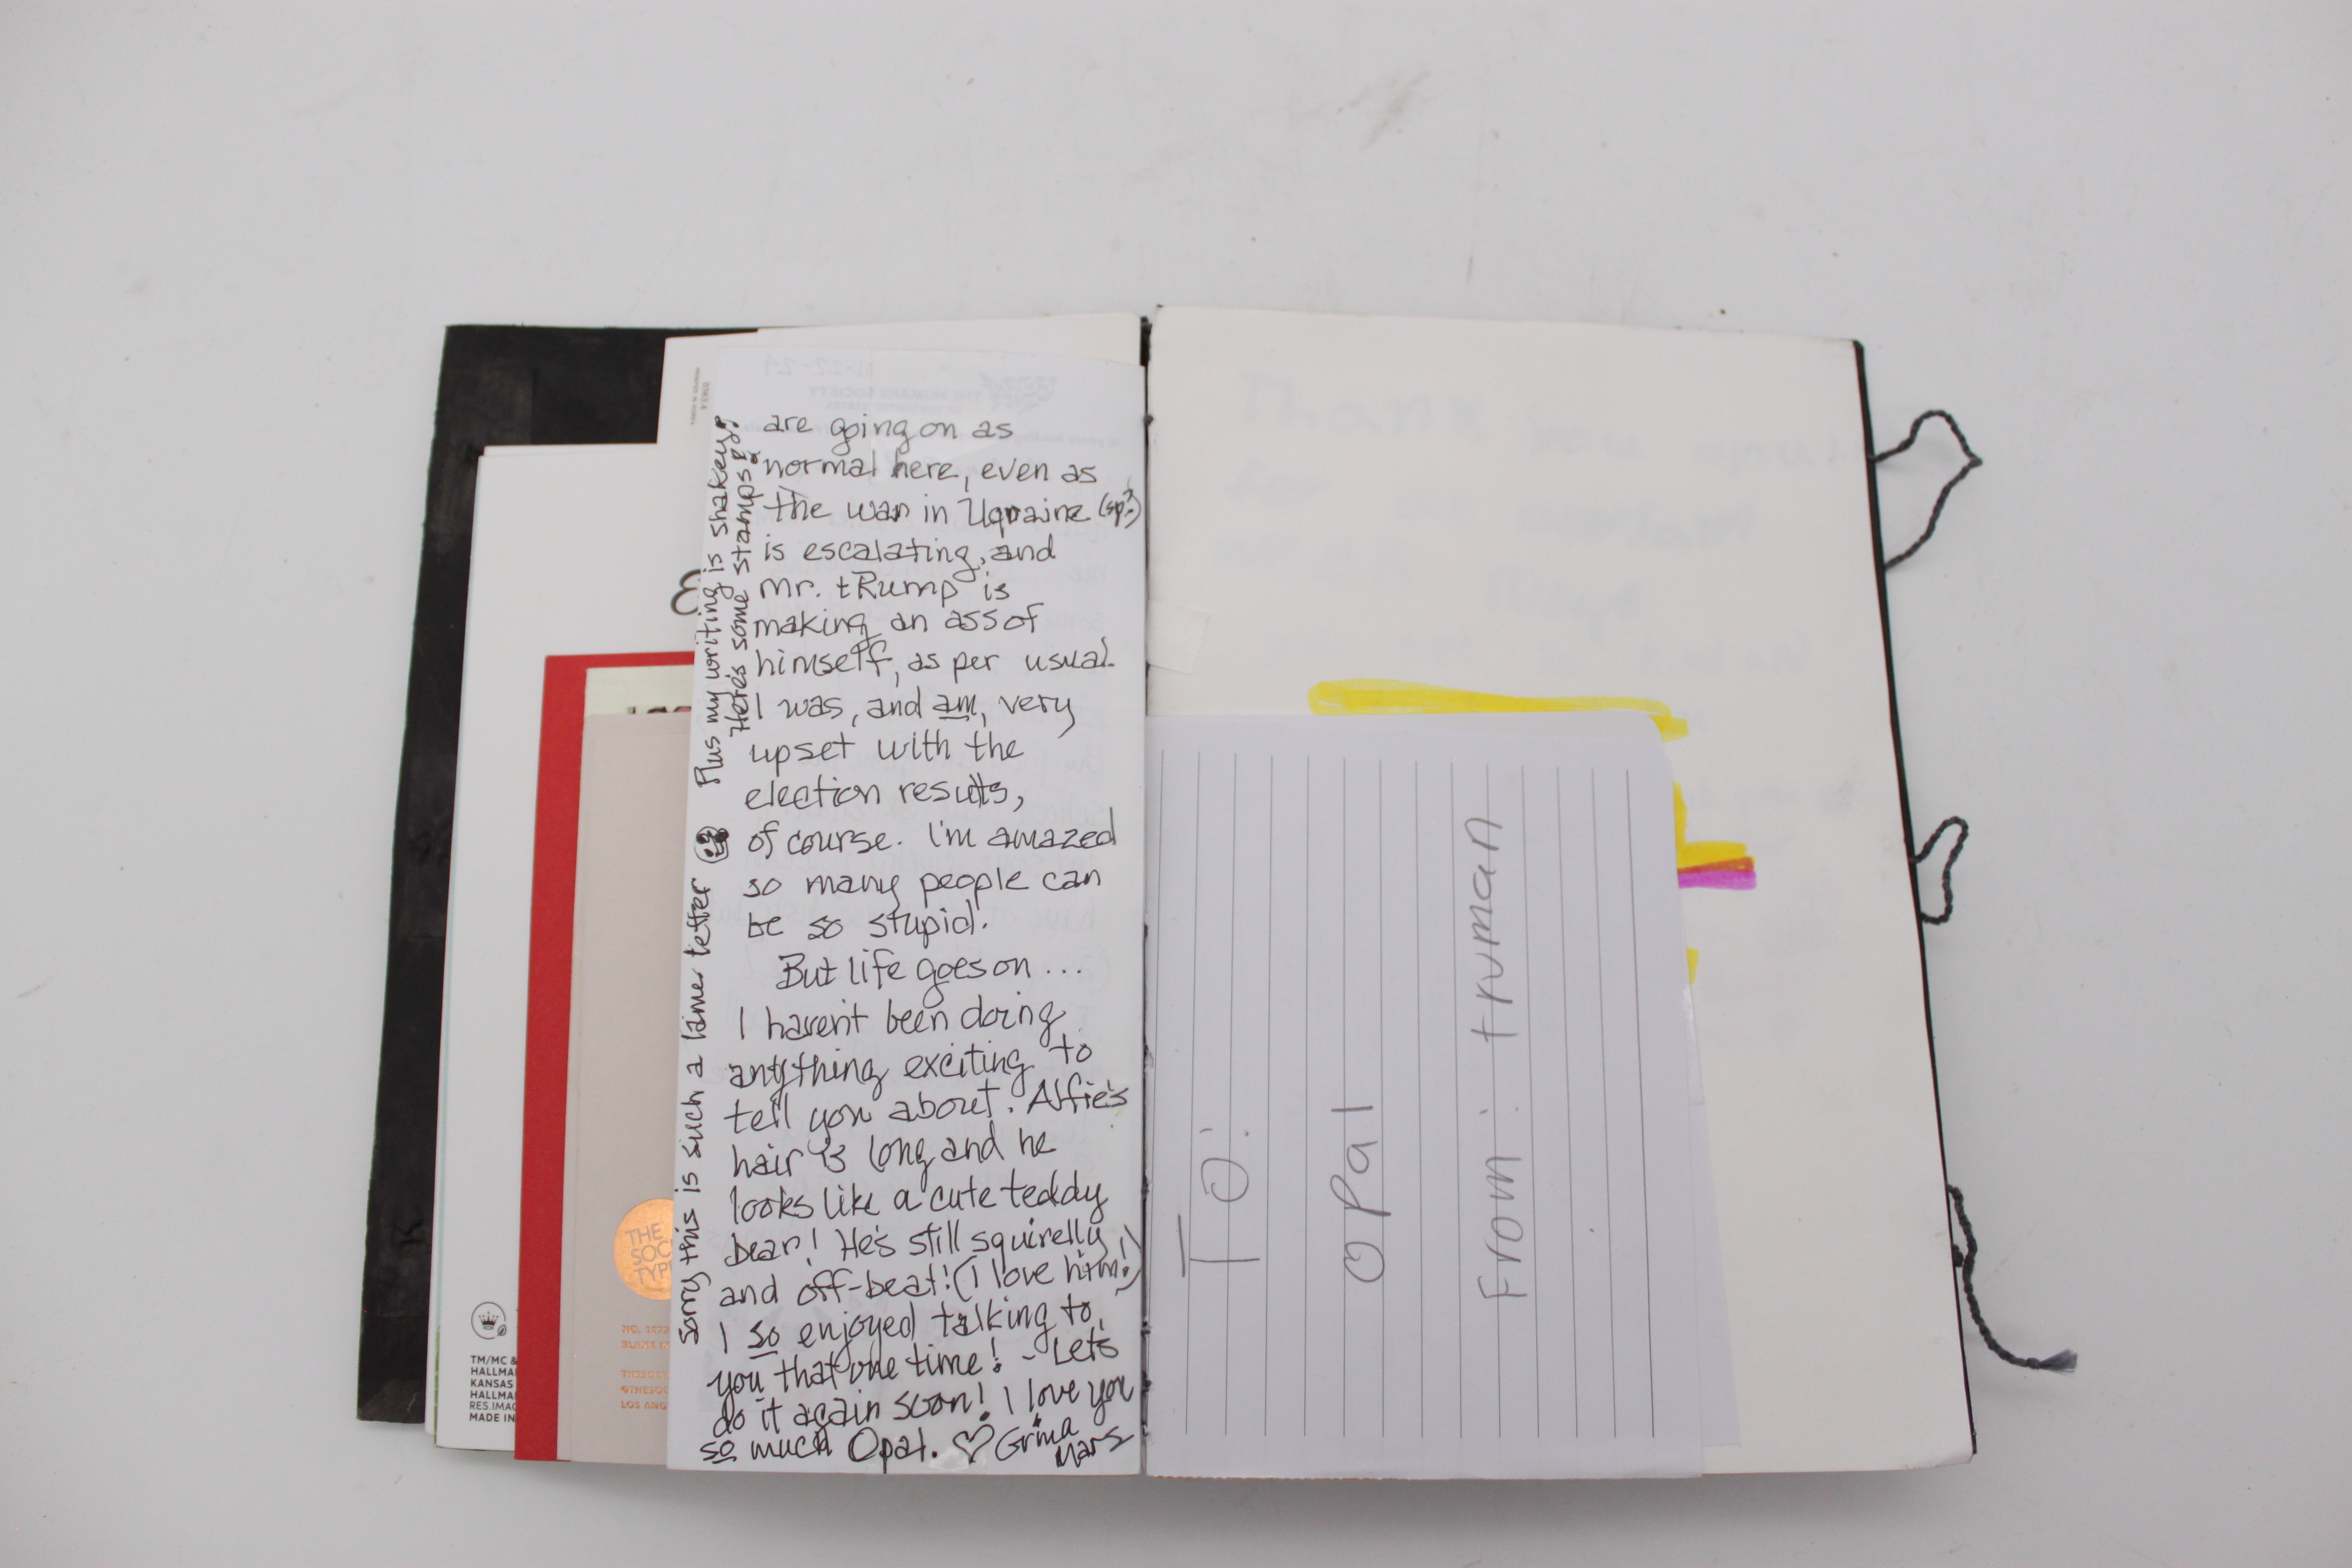 are going on as
normal here, even as
the war in Uqraine (sp?)
is escalating, and
Mr. tRump is
making an ass of
himself, as per usual.
I was, and am, very
upset with the
election results,
of course. I'm amazed
so many people can
be so stupid.
But life goes on...
I haven't been doing
anything exciting to
tell you about. Alfie's
hair is long and he
looks like a cute teddy
bear! He's still squirelly
and off-beat! (I love him!)
I so enjoyed talking to
you that one time! - Let's
do it again soon! I love you
so much Opal. ♡ Grma
Mars
Sorry this is such a lame letter Plus my writing is shakey!
Here's some stamps
THE
SOC
TYP
NO.
BLANK
LOS ANG
TM/MC &
HALLMA
KANSAS
HALLMA
RES.IMAG
MADE IN
Thank you
for
TO:
opal
From: truman